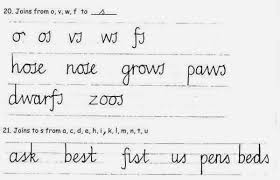 20. Joins from o, v, w, f to s
or os vs ws fs
hose nose grows paws
dwarfs zoos
21. Joins to s from a, c, d, e, h, i, k, l, m, n, t, u
ask best fist us pens beds